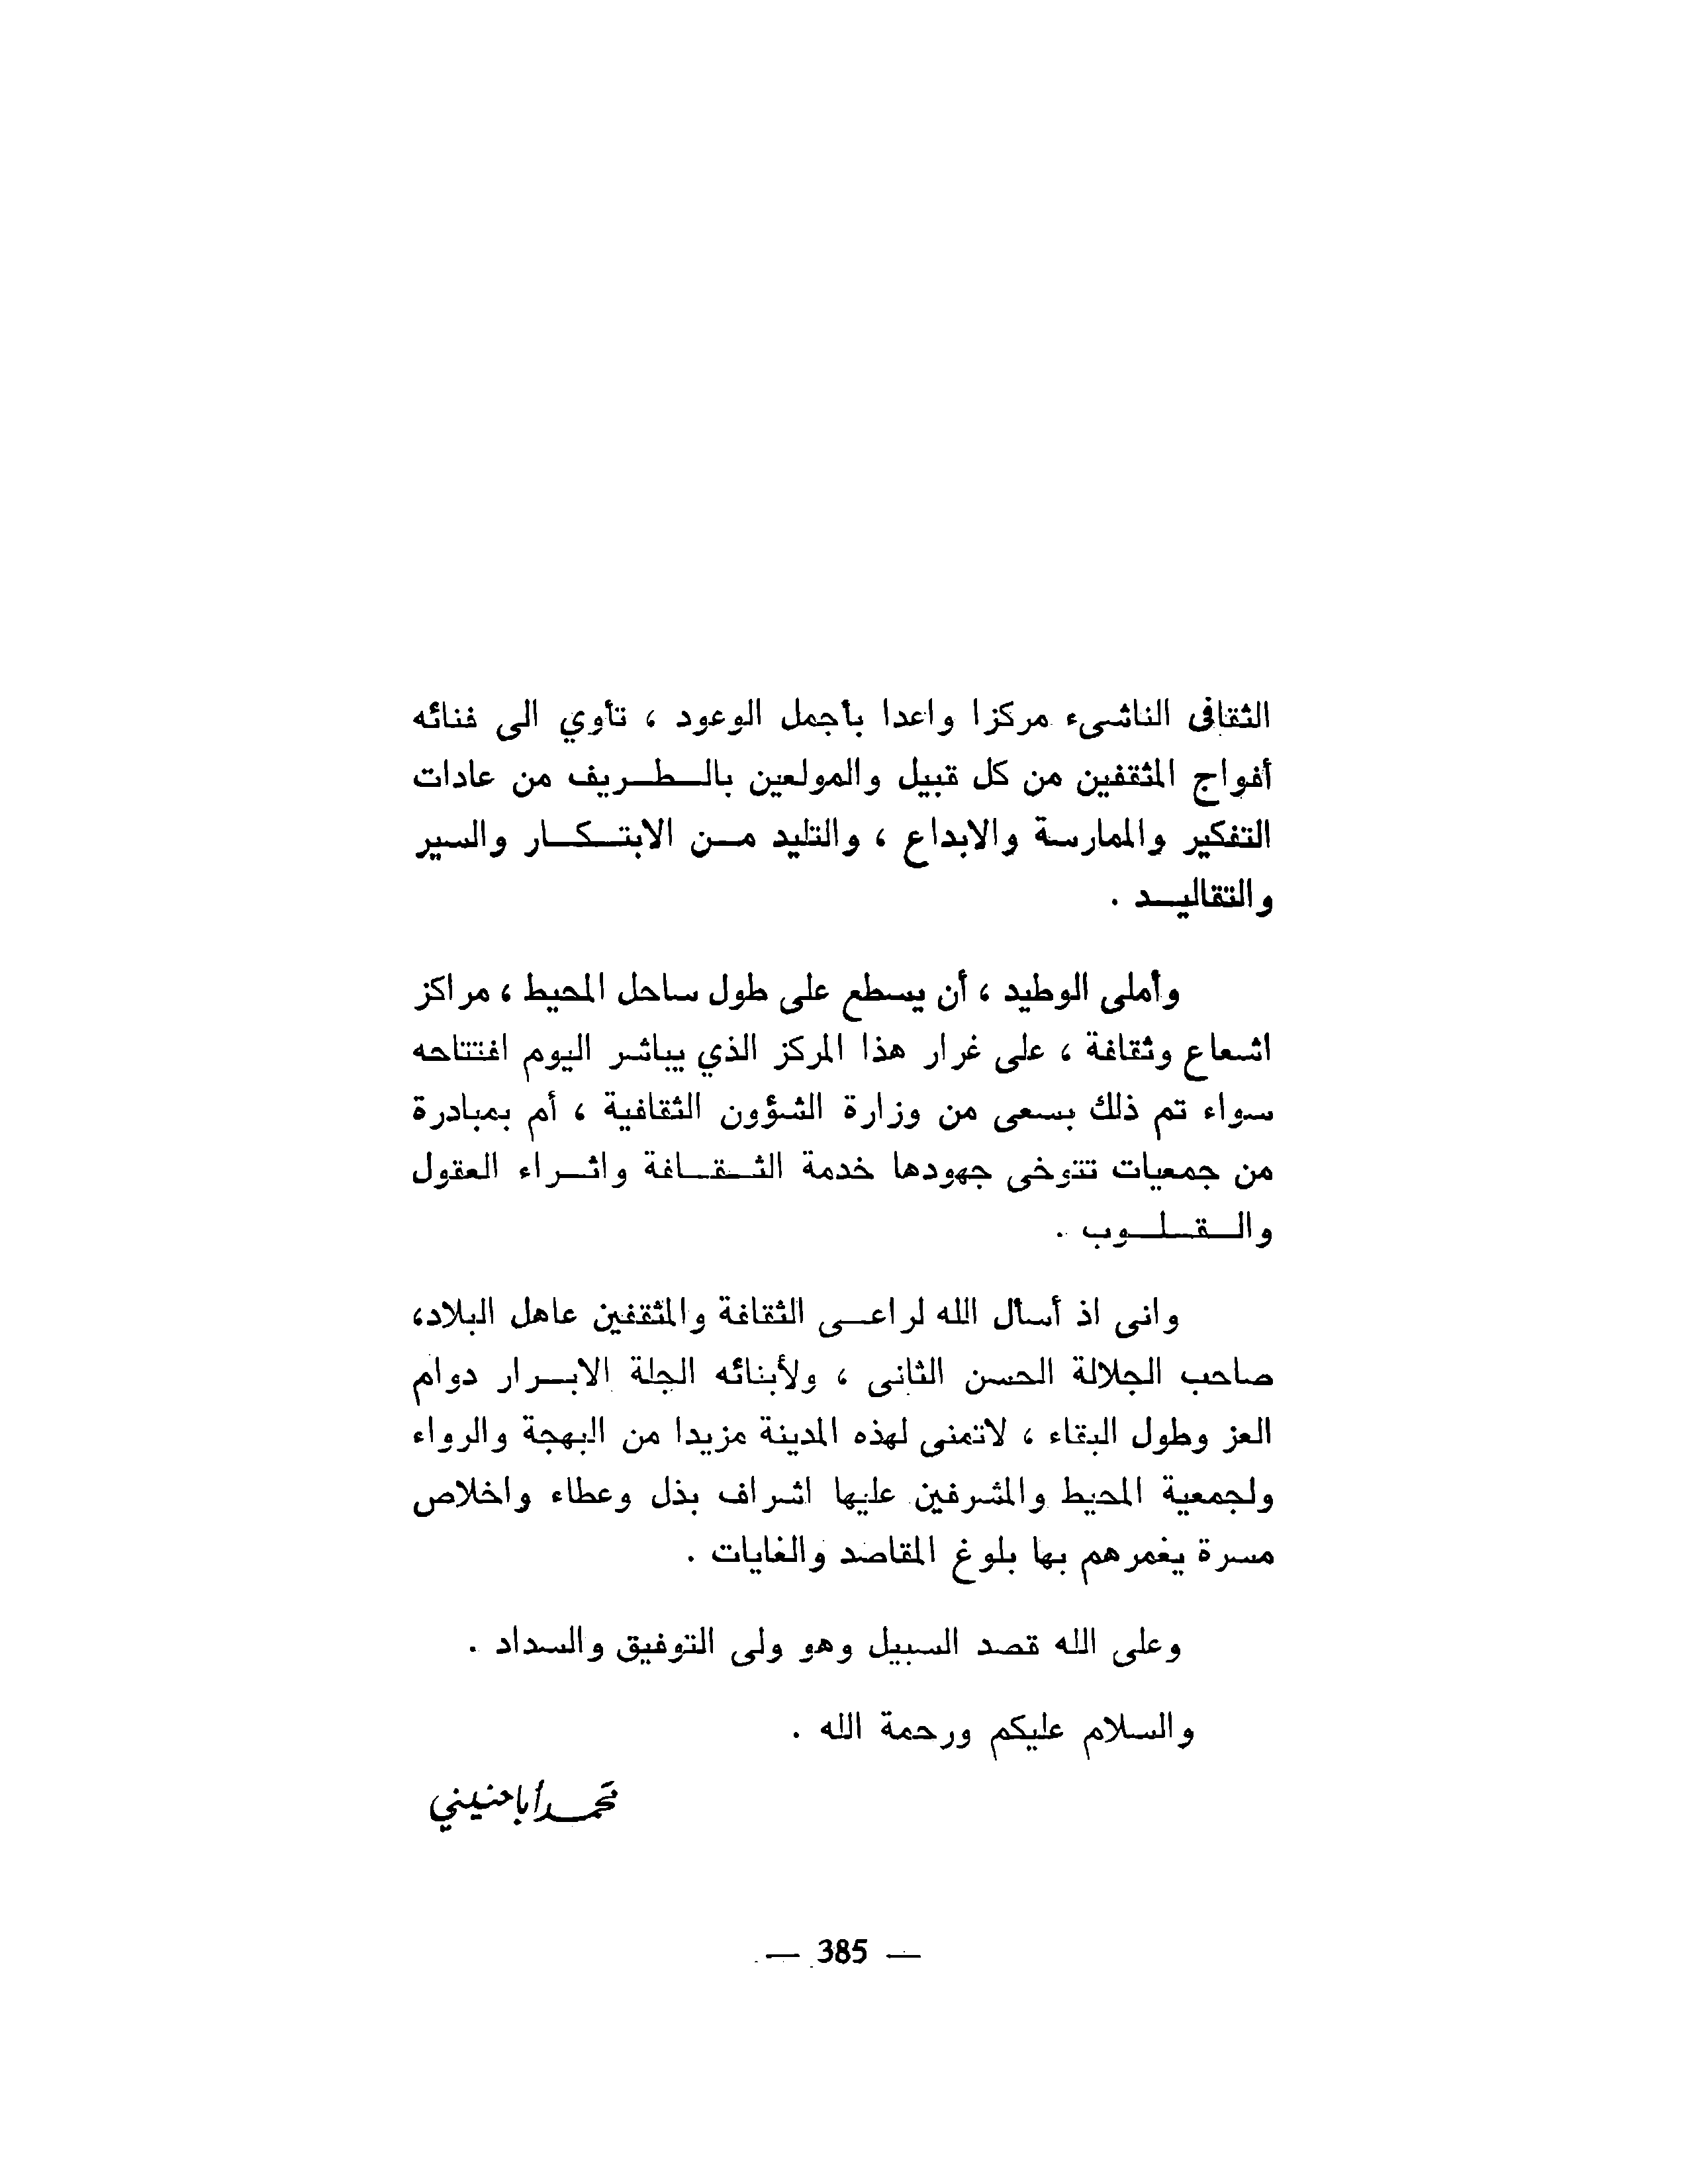 الثقافى الناشىء مركزا واعدا بأجمل الوعود ، تأوي الى فنائه
أفواج المثقفين من كل قبيل والمولعين بالطريف من عادات
التفكير والممارسة والابداع ، والتليد من الابتكار والسير
والتقاليد .
وأملى الوطيد ، أن يسطع على طول ساحل المحيط ، مراكز
اشعاع وثقافة ، على غرار هذا المركز الذي يباشر اليوم افتتاحه
سواء تم ذلك بسعى من وزارة الشؤون الثقافية ، أم بمبادرة
من جمعيات تتوخى جهودها خدمة الثقافة واثراء العقول
والقلوب .
وانى اذ أسأل الله لراعى الثقافة والمثقفين عاهل البلاد،
صاحب الجلالة الحسن الثانى ، ولأبنائه الجلة الابرار دوام
العز وطول البقاء ، لاتمنى لهذه المدينة مزيدا من البهجة والرواء
ولجمعية المحيط والمشرفين عليها اشراف بذل وعطاء واخلاص
مسرة يغمرهم بها بلوغ المقاصد والغايات .
وعلى الله قصد السبيل وهو ولى التوفيق والسداد .
والسلام عليكم ورحمة الله .
محمد أباحنيني
— 385 —